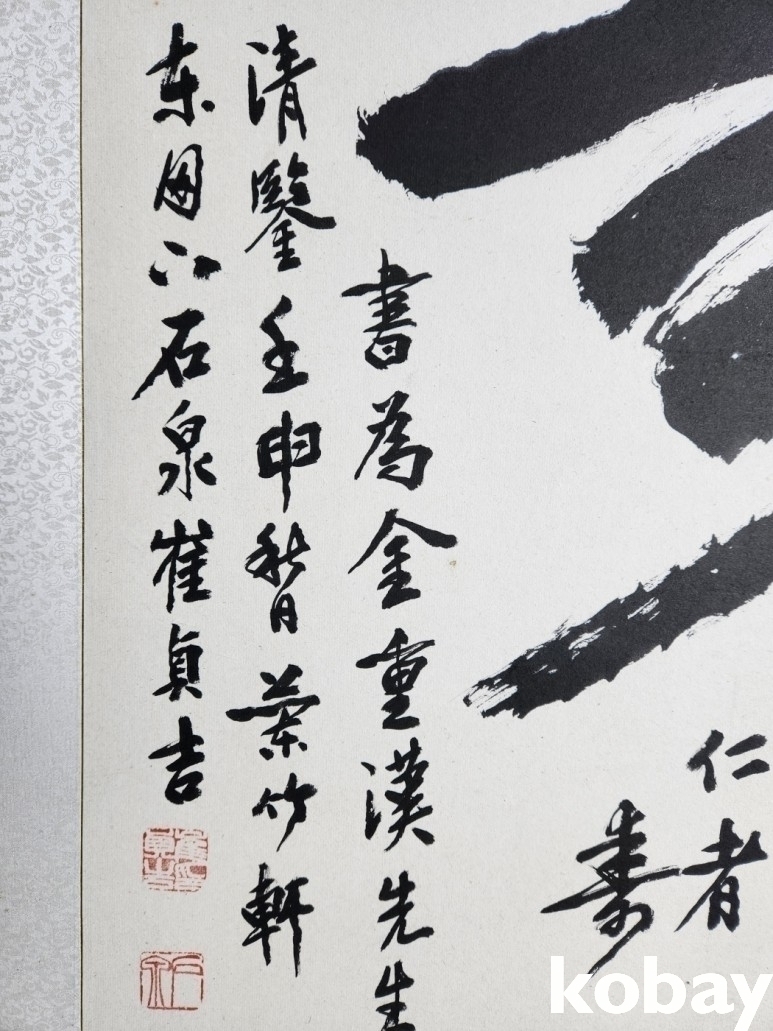 仁者
壽
書為金重漢先生
清鑒壬申智月蘭竹軒
東囱下石泉崔貞吉
kobay